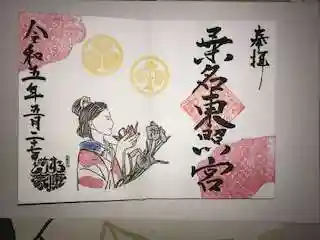 奉拝
桑名東照宮
令和五年五月二十七日